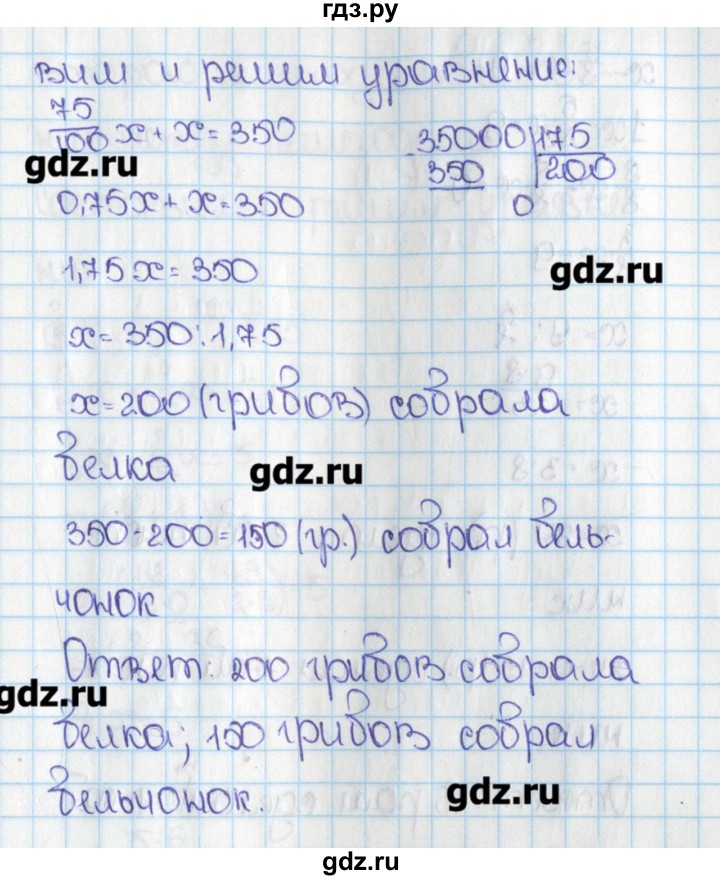 гдз.ру
вим и решим уравнение:
75/100 x + x = 350
35000 | 175
350 | 200
0
gdz.ru
0,75x + x = 350
gdz.ru
1,75x = 350
x = 350 : 1,75
x = 200 (грибов) собрала
белка
gdz.ru
350 - 200 = 150 (гр.) собрал бель-
чонок
Ответ: 200 грибов собрала
gdz.ru
белка; 150 грибов собрал
бельчонок.
gdz.ru
gdz.ru